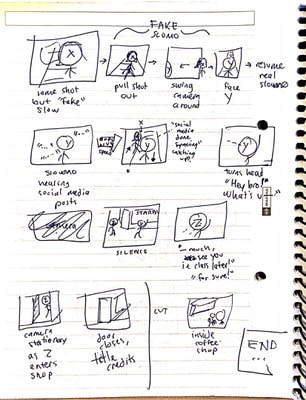 FAKE
SLOMO
X
same shot
but "fake"
slow
pull shot
out
swing
camera
around
face
Y
→ resume
real
slowmo
Y
SLOWMO
hearing
social media
posts
X
Y
"social
media
done
Y
turns head
"Hey bro!
What's
camera
SILENCE
Z
much,
see you
in class later!"
"for sure!"
camera
stationary
as Z
enters
shop
door
closes,
title
credits
CUT
inside
coffee
shop
END
...